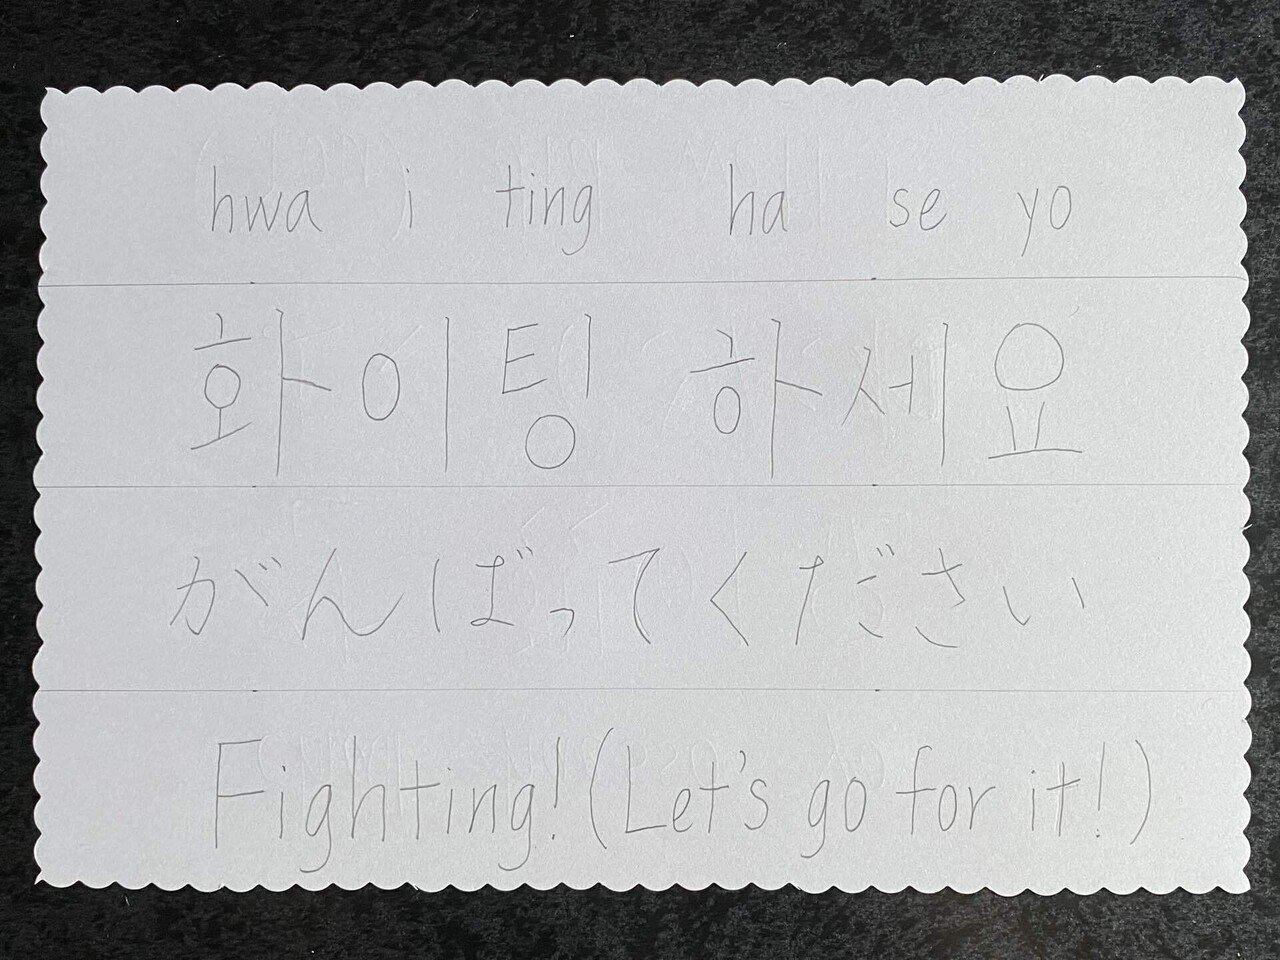 hwa i ting ha se yo
화이팅 하세요
がんばってください
Fighting! (Let's go for it!)